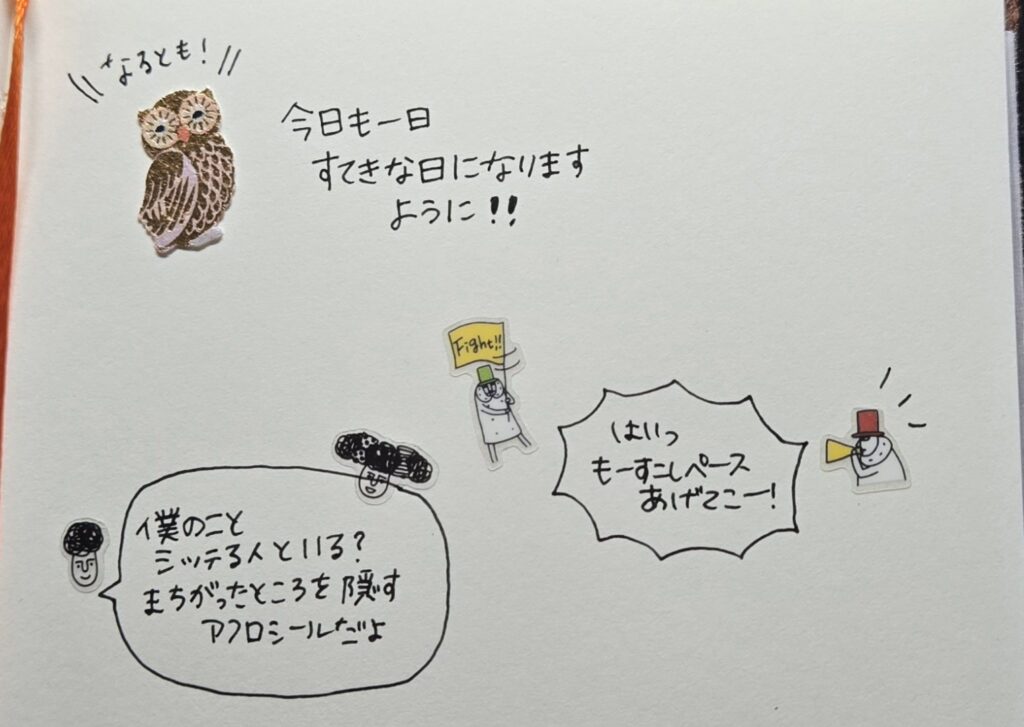 なるとも!
今日も一日
すてきな日になります
ように!!
Fight!!
はいっ
もーすこしペース
あげてこー!
僕のこと
シッテる人といる?
まちがったところを隠す
アフロシールだよ